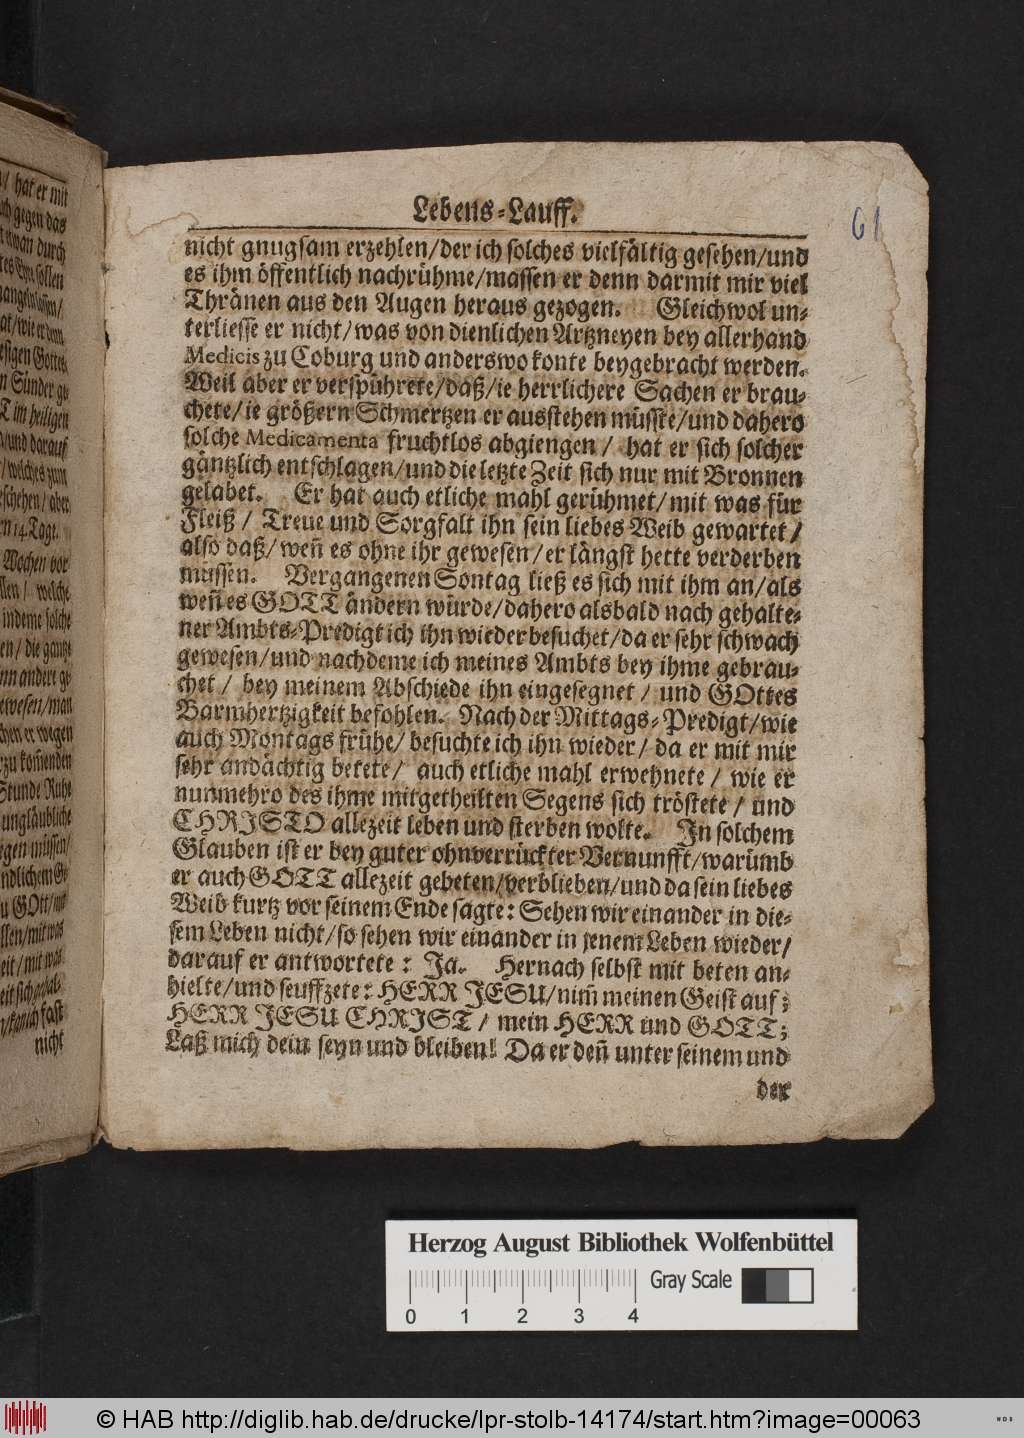 / hat er mit
gegen das
durch
sollen
wie er denn
Gottes
Sünder
im heiligen
und darauf
welches zum
geschehen / aber
14. Tage.
Wochen vor
welche
indeme solche
die gantze
andere
gewesen / man
er wegen
zu kom̃enden
Stunde Ruhe
ungläubliche
müssen /
GOtt /
mit was
mit was
fast
nicht
Lebens-Lauff.
61
nicht gnugsam erzehlen / der ich solches vielfältig gesehen / und
es ihm öffentlich nachrühme / massen er denn darmit mir viel
Thränen aus den Augen heraus gezogen. Gleichwol un-
terliesse er nicht / was von dienlichen Artzneyen bey allerhand
Medicis zu Coburg und anderswo konte beygebracht werden.
Weil aber er verspührete / daß / ie herrlichere Sachen er brau-
chete / ie größern Schmertzen er ausstehen müsste / und dahero
solche Medicamenta fruchtlos abgiengen / hat er sich solcher
gäntzlich entschlagen / und die letzte Zeit sich nur mit Bronnen
gelabet. Er hat auch etliche mahl gerühmet / mit was für
Fleiß / Treue und Sorgfalt ihn sein liebes Weib gewartet /
also daß / weñ es ohne ihr gewesen / er längst hette verderben
müssen. Vergangenen Sontag ließ es sich mit ihm an / als
weñ es GOTT ändern würde / dahero alsbald nach gehalte-
ner Ambts-Predigt ich ihn wieder besuchet / da er sehr schwach
gewesen / und nachdeme ich meines Ambts bey ihme gebrau-
chet / bey meinem Abschiede ihn eingesegnet / und GOttes
Barmhertzigkeit befohlen. Nach der Mittags-Predigt / wie
auch Montags frühe / besuchte ich ihn wieder / da er mit mir
sehr andächtig betete / auch etliche mahl erwehnete / wie er
nunmehro des ihme mitgetheilten Segens sich tröstete / und
CHRISTO allezeit leben und sterben wolte. In solchem
Glauben ist er bey guter ohnverrückter Vernunfft / warümb
er auch GOTT allezeit gebeten / verblieben / und da sein liebes
Weib kurtz vor seinem Ende sagte: Sehen wir einander in die-
sem Leben nicht / so sehen wir einander in jenem Leben wieder /
darauf er antwortete: Ja. Hernach selbst mit beten an-
hielte / und seuffzete: HERR JESU / nim̃ meinen Geist auf;
HERR JESU CHRIST / mein HERR und GOTT;
Laß mich dein seyn und bleiben! Da er deñ unter seinem und
der
Herzog August Bibliothek Wolfenbüttel
Gray Scale
0 1 2 3 4
© HAB http://diglib.hab.de/drucke/lpr-stolb-14174/start.htm?image=00063